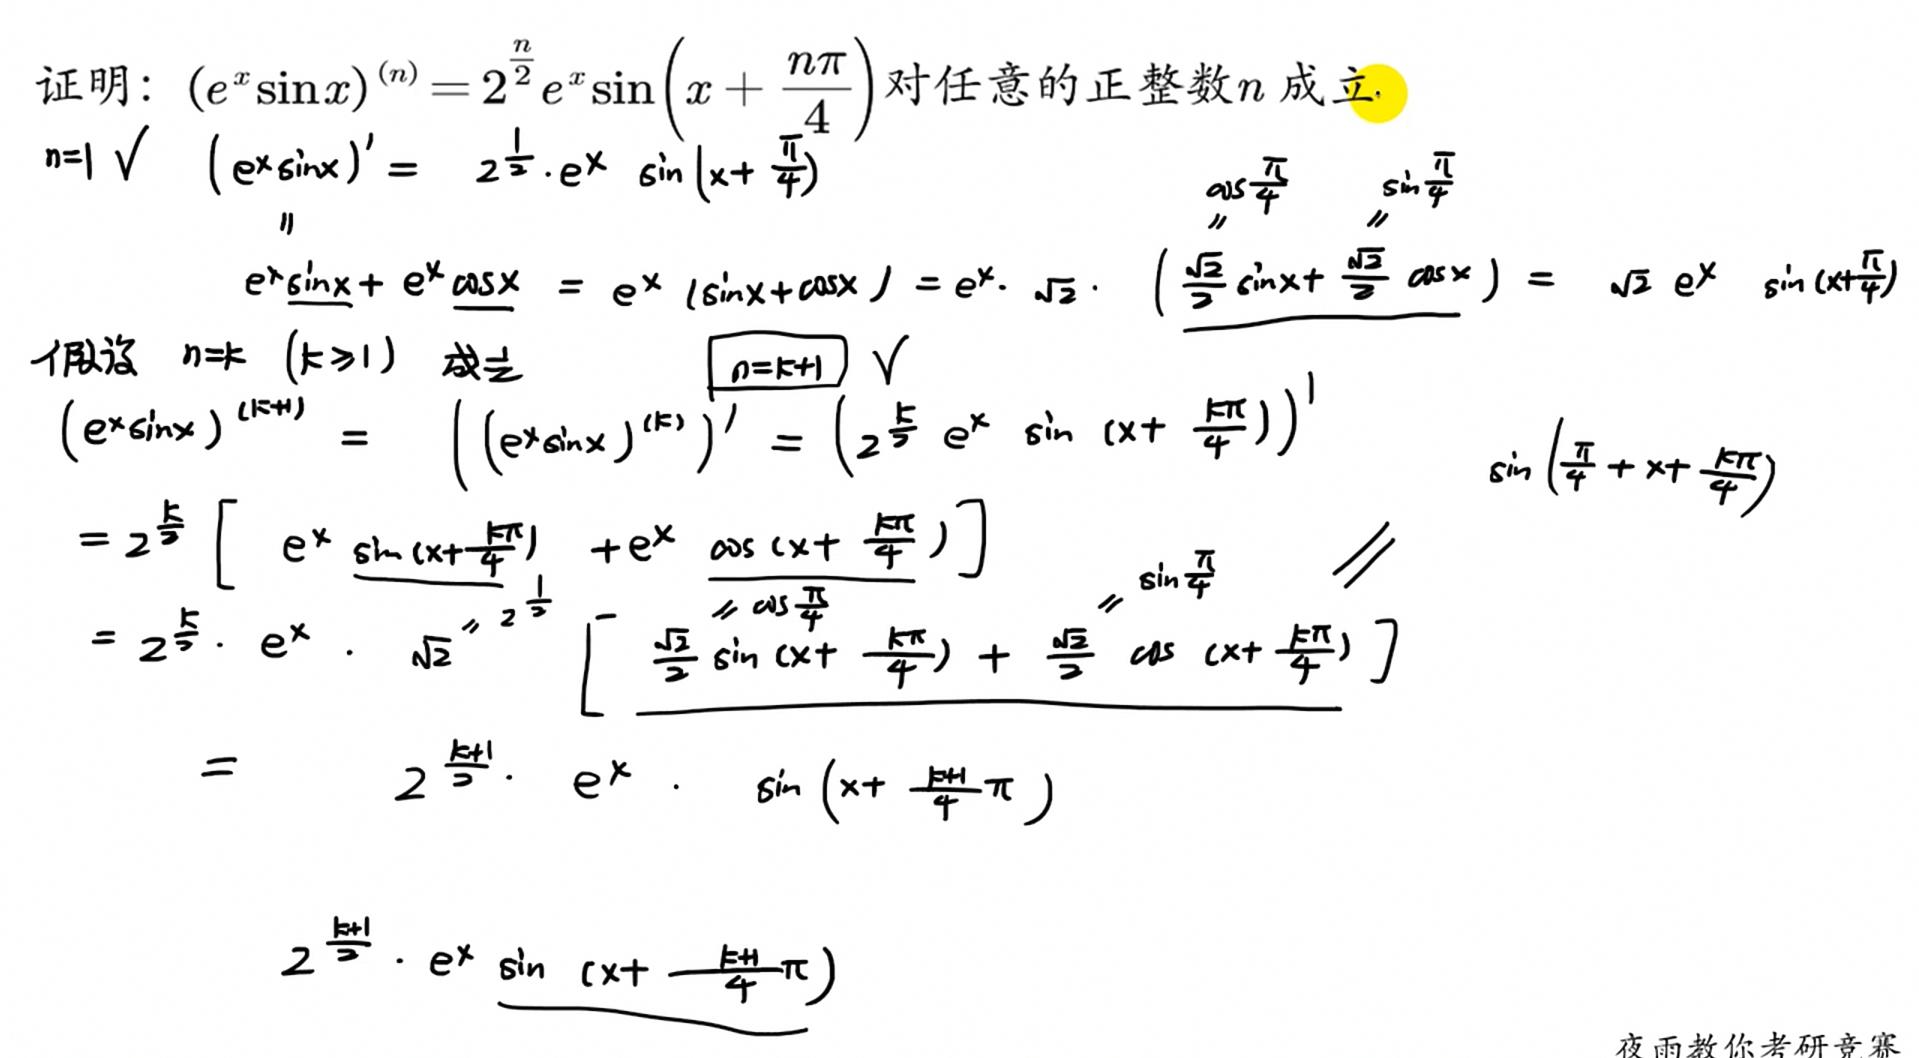 证明：(e^x sin x)^(n) = 2^(n/2) e^x sin(x + nπ/4) 对任意的正整数n 成立.
n=1 √ (e^x sinx)' = 2^(1/2) · e^x sin(x + π/4)
cos π/4 sin π/4
= = =
e^x sinx + e^x cosx = e^x (sinx + cosx) = e^x · √2 · (√2/2 sinx + √2/2 cosx) = √2 e^x sin(x+π/4)
假设 n=k (k≥1) 成立 n=k+1 √
(e^x sinx)^(k+1) = ((e^x sinx)^(k))' = (2^(k/2) e^x sin (x+ kπ/4))'
sin(π/4 + x + kπ/4)
= 2^(k/2) [ e^x sin(x+kπ/4) + e^x cos(x+ kπ/4) ]
= 2^(1/2) = cos π/4 = sin π/4 =
= 2^(k/2) · e^x · √2 [ √2/2 sin(x+ kπ/4) + √2/2 cos (x+ kπ/4) ]
= 2^((k+1)/2) · e^x · sin(x+ (k+1)/4 π)
2^((k+1)/2) · e^x sin (x+ (k+1)/4 π)
夜雨教你考研竞赛